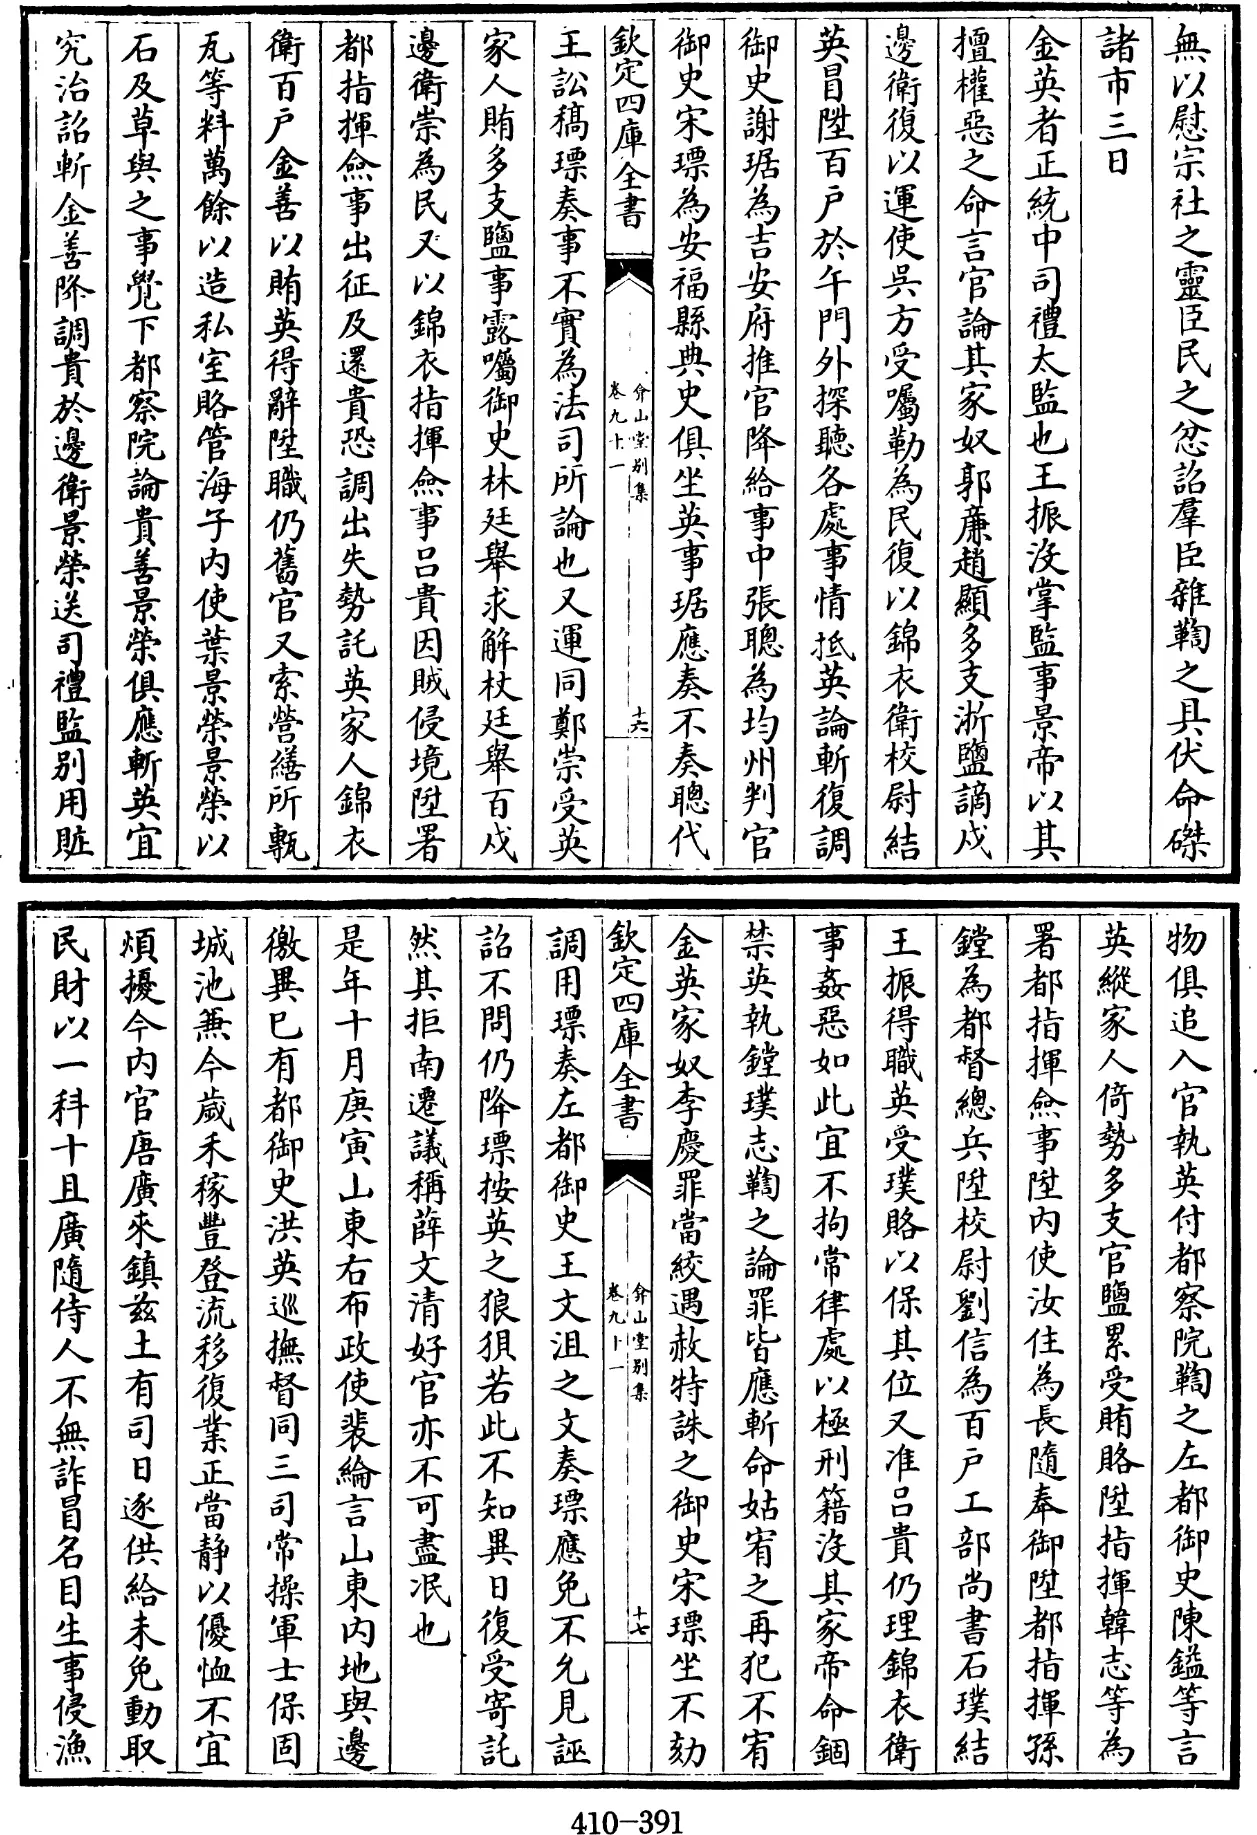 無以慰宗社之靈臣民之忿詔羣臣雜鞫之具伏命磔
諸市三日
金英者正統中司禮太監也王振沒掌監事景帝以其
擅權惡之命言官論其家奴郭廉趙顯多支浙鹽謫戍
邊衛復以運使吳方受囑勒為民復以錦衣衛校尉結
英冒陞百戶於午門外探聽各處事情抵英論斬復調
御史謝琚為吉安府推官降給事中張聰為均州判官
御史宋瓀為安福縣典史俱坐英事琚應奏不奏聰代
欽定四庫全書
弇山堂別集
卷九十一
十六
王訟稿瓀奏事不實為法司所論也又運同鄭崇受英
家人賄多支鹽事露囑御史林廷舉求解杖廷舉百戍
邊衛崇為民又以錦衣指揮僉事呂貴因賊侵境陞署
都指揮僉事出征及還貴恐調出失勢託英家人錦衣
衛百戶金善以賄英得辭陞職仍舊官又索營繕所甎
瓦等料萬餘以造私室賂管海子內使葉景榮景榮以
石及草與之事覺下都察院論貴善景榮俱應斬英宜
究治詔斬金善降調貴於邊衛景榮送司禮監別用贓
物俱追入官執英付都察院鞫之左都御史陳鎰等言
英縱家人倚勢多支官鹽累受賄賂陞指揮韓志等為
署都指揮僉事陞內使汝住為長隨奉御陞都指揮孫
鏜為都督總兵陞校尉劉信為百戶工部尚書石璞結
王振得職英受璞賂以保其位又准呂貴仍理錦衣衛
事姦惡如此宜不拘常律處以極刑籍沒其家帝命錮
禁英執鏜璞志鞫之論罪皆應斬命姑宥之再犯不宥
金英家奴李慶罪當絞遇赦特誅之御史宋瓀坐不劾
欽定四庫全書
弇山堂別集
卷九十一
十七
調用瓀奏左都御史王文沮之文奏瓀應免不允見誣
詔不問仍降瓀按英之狼狽若此不知異日復受寄託
然其拒南遷議稱薛文清好官亦不可盡冺也
是年十月庚寅山東右布政使裴綸言山東內地與邊
徼異已有都御史洪英巡撫督同三司常操軍士保固
城池兼今歲禾稼豐登流移復業正當靜以優恤不宜
煩擾今內官唐廣來鎮茲土有司日逐供給未免動取
民財以一科十且廣隨侍人不無詐冒名目生事侵漁
410-391